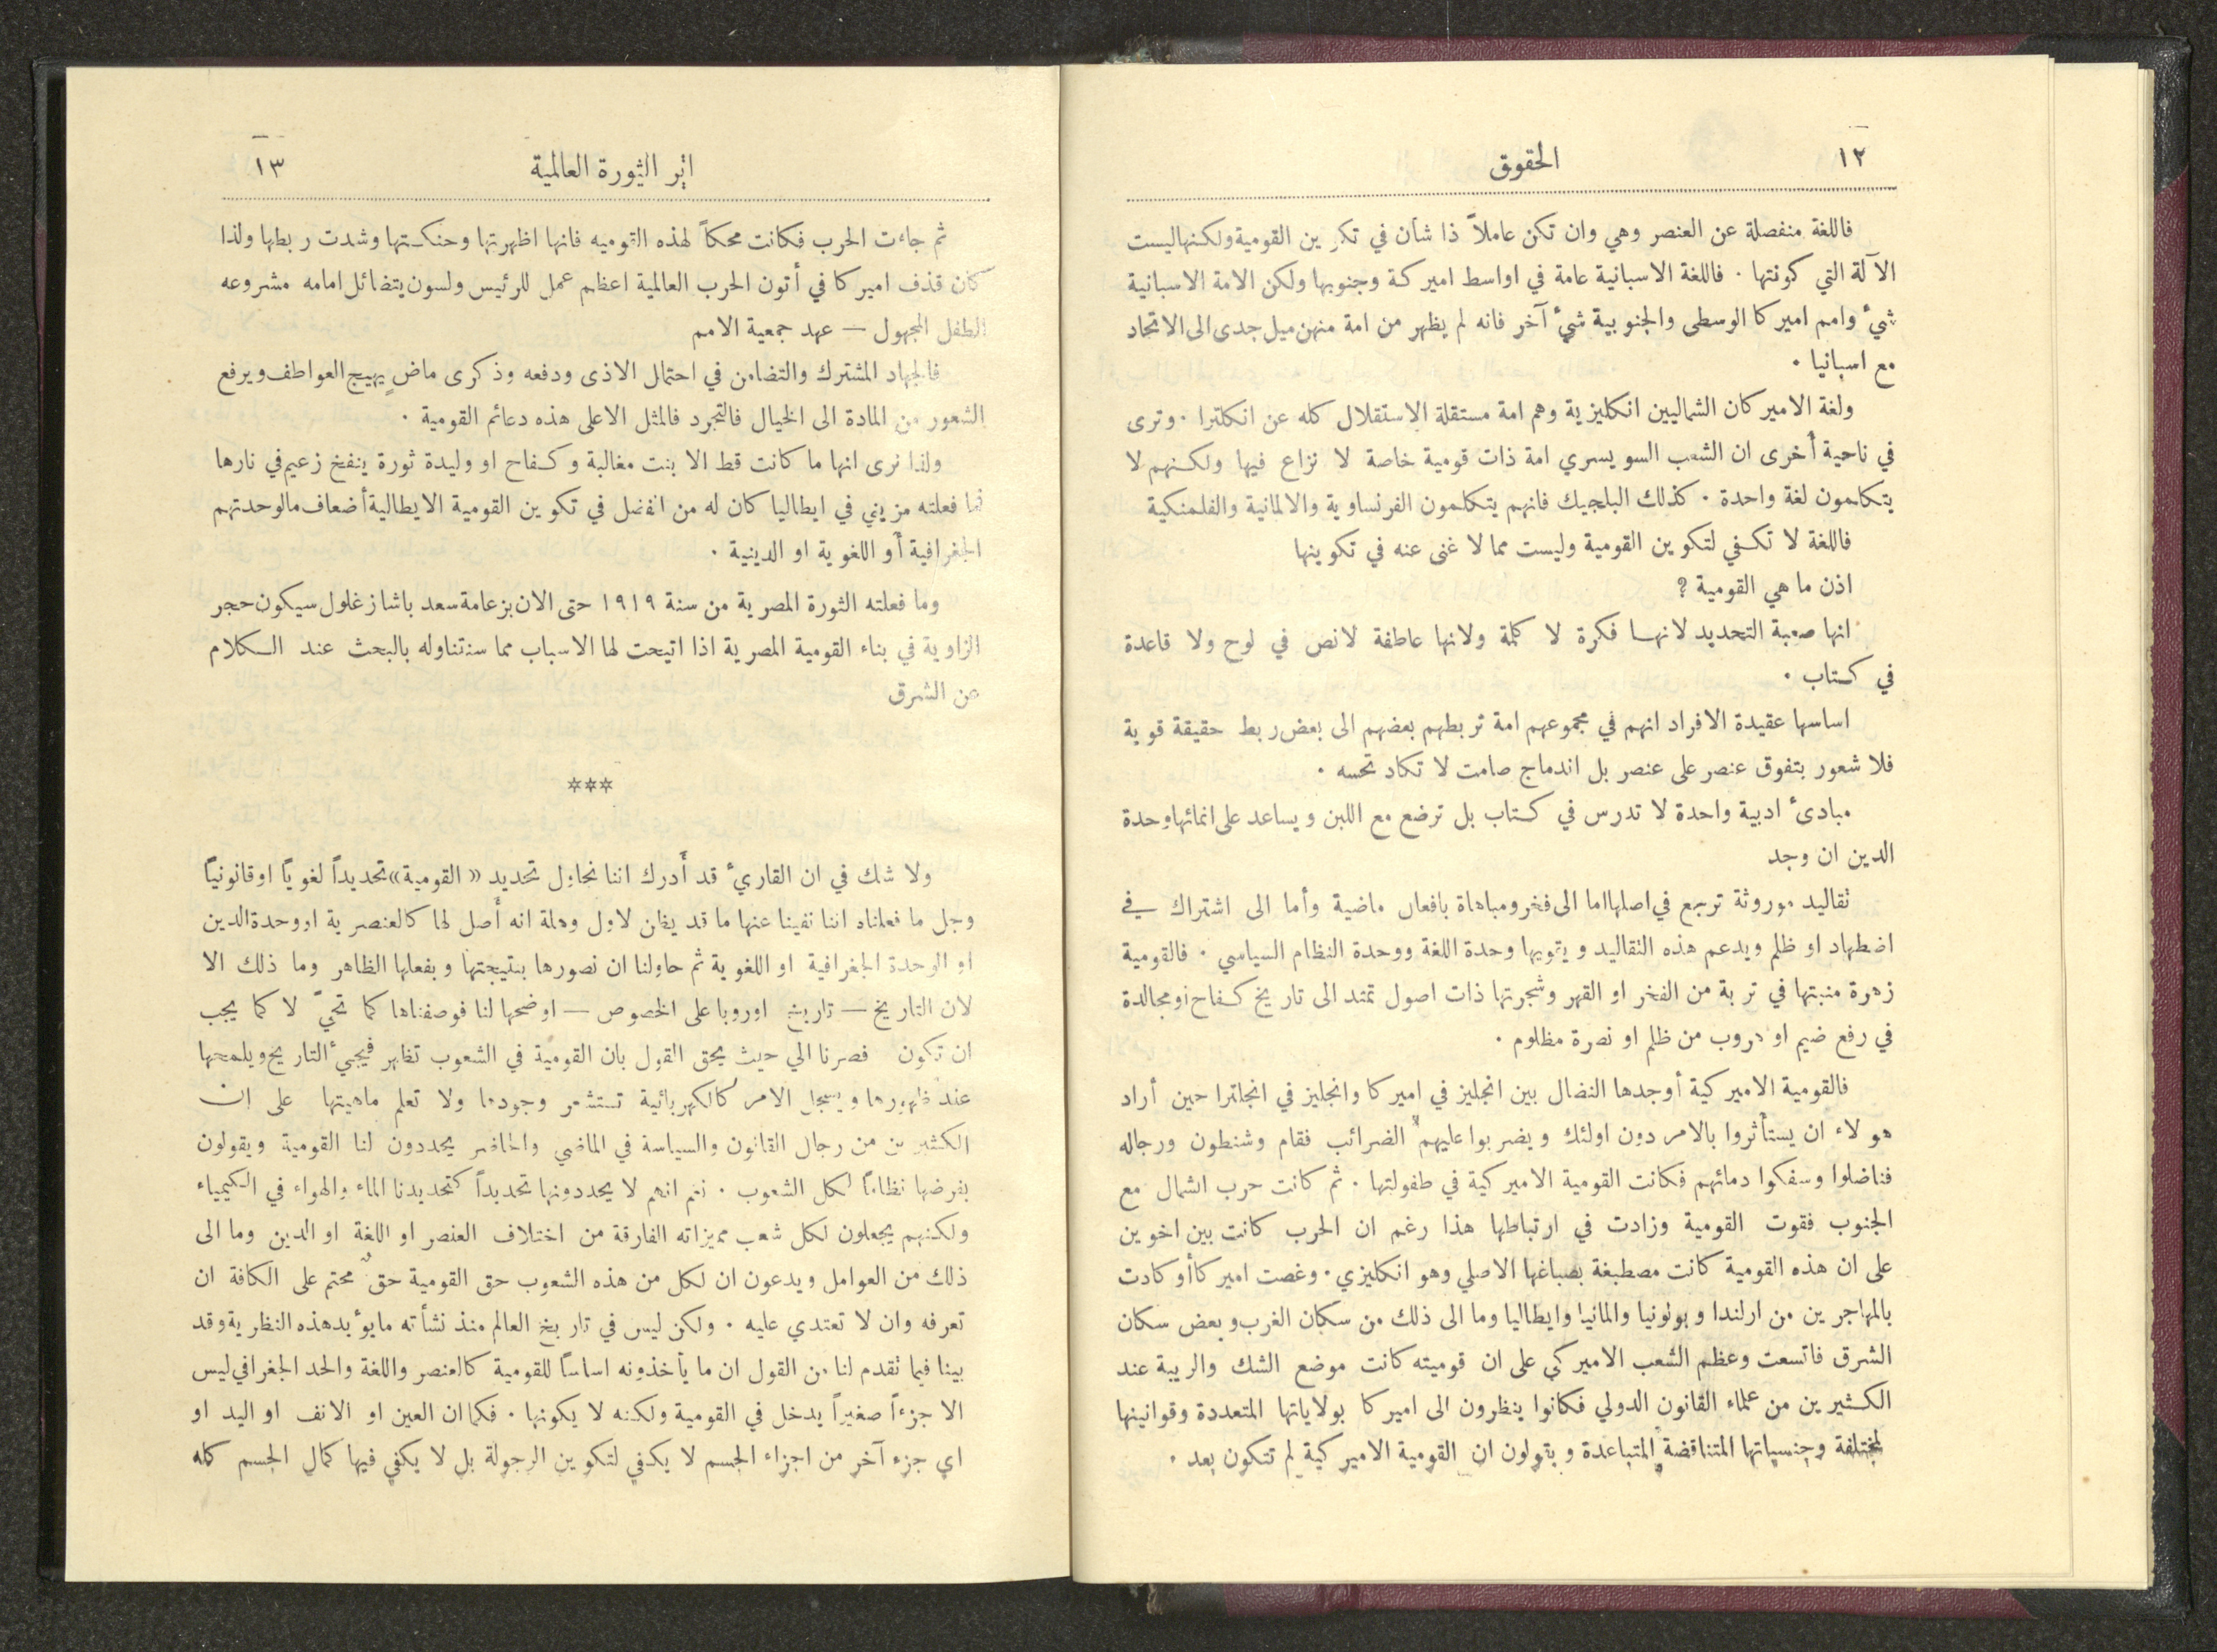 ١٢
الحقوق
فاللغة منفصلة عن العنصر وهي وان تكن عاملاً ذا شأن في تكوين القومية ولكنها ليست
الآلة التي كونتها . فاللغة الاسبانية عامة في اواسط اميركة وجنوبها ولكن الامة الاسبانية
شيٌ وامم اميركا الوسطى والجنوبية شيٌ آخر فانه لم يظهر من امة منهن ميل جدى الى الاتحاد
مع اسبانيا .
ولغة الاميركان الشماليين انكليزية وهم امة مستقلة الاستقلال كله عن انكلترا . وترى
في ناحية أخرى ان الشعب السويسري امة ذات قومية خاصة لا نزاع فيها ولكنهم لا
يتكلمون لغة واحدة . كذلك البلجيك فانهم يتكلمون الفرنساوية والالمانية والفلمنكية
فاللغة لا تكفي لتكوين القومية وليست مما لا غنى عنه في تكوينها
اذن ما هي القومية ؟
انها صعبة التحديد لانها فكرة لا كلمة ولانها عاطفة لانص في لوح ولا قاعدة
في كتاب .
اساسها عقيدة الافراد انهم في مجموعهم امة تربطهم بعضهم الى بعض ربط حقيقة قوية
فلا شعور بتفوق عنصر على عنصر بل اندماج صامت لا تكاد تحسه .
مبادئ ادبية واحدة لا تدرس في كتاب بل ترضع مع اللبن ويساعد على انمائها وحدة
الدين ان وجد
تقاليد موروثة ترجع في اصلها اما الى فخر ومباهاة بافعال ماضية وأما الى اشتراك في
اضطهاد او ظلم ويدعم هذه التقاليد ويقويها وحدة اللغة ووحدة النظام السياسي . فالقومية
زهرة منبتها في تربة من الفخر او القهر وشجرتها ذات اصول تمتد الى تاريخ كفاح او مجالدة
في رفع ضيم او هروب من ظلم او نصرة مظلوم .
فالقومية الاميركية أوجدها النضال بين انجليز في اميركا وانجليز في انجلترا حين أراد
هولاء ان يستأثروا بالامر دون اولئك ويضربوا عليهم الضرائب فقام وشنطون ورجاله
فناضلوا وسفكوا دمائهم فكانت القومية الاميركية في طفولتها . ثم كانت حرب الشمال مع
الجنوب فقوت القومية وزادت في ارتباطها هذا رغم ان الحرب كانت بين اخوين
على ان هذه القومية كانت مصطبغة بصباغها الاصلي وهو انكليزي . وغصت اميركا أو كادت
بالمهاجرين من ارلندا وبولونيا والمانيا وايطاليا وما الى ذلك من سكان الغرب وبعض سكان
الشرق فاتسعت وعظم الشعب الاميركي على ان قوميته كانت موضع الشك والريبة عند
الكثيرين من علماء القانون الدولي فكانوا ينظرون الى اميركا بولاياتها المتعددة وقوانينها
لمختلفة وجنسياتها المتناقضة المتباعدة ويقولون ان القومية الاميركية لم تتكون بعد .
اثر الثورة العالمية
١٣
ثم جاءت الحرب فكانت محكاً لهذه القوميه فانها اظهرتها وحنكتها وشدت ربطها ولذا
كان قذف اميركا في أتون الحرب العالمية اعظم عمل للرئيس ولسون يتضائل امامه مشروعه
الطفل المجهول — عهد جمعية الامم
فالجهاد المشترك والتضامن في احتمال الاذى ودفعه وذكرى ماضٍ يهيج العواطف ويرفع
الشعور من المادة الى الخيال فالتجرد فالمثل الاعلى هذه دعائم القومية .
ولذا نرى انها ما كانت قط الا بنت مغالبة وكفاح او وليدة ثورة ينفخ زعيم في نارها
فما فعلته مزيني في ايطاليا كان له من الفضل في تكوين القومية الايطالية أضعاف مالوحدتهم
الجغرافية أو اللغوية او الدينية .
وما فعلته الثورة المصرية من سنة ١٩١٩ حتى الان بزعامة سعد باشا زغلول سيكون حجر
الزاوية في بناء القومية المصرية اذا اتيحت لها الاسباب مما سنتناوله بالبحث عند الكلام
عن الشرق
***
ولا شك في ان القاريٌ قد أدرك اننا نحاول تحديد « القومية » تحديداً لغوياً او قانونياً
وجل ما فعلناه اننا نفينا عنها ما قد يظن لاول وهلة انه أصل لها كالعنصرية او وحدة الدين
او الوحدة الجغرافية او اللغوية ثم حاولنا ان نصورها بنتيجتها وبفعلها الظاهر وما ذلك الا
لان التاريخ — تاريخ اوروبا على الخصوص — اوضحها لنا فوصفناها كما تحيّ لا كما يجب
ان تكون فصرنا الي حيث يحق القول بان القومية في الشعوب تظهر فيجيٌ التاريخ ويلمحها
عند ظهورها ويسجل الامر كالكهربائية تستشعر وجودها ولا تعلم ماهيتها على ان
الكثيرين من رجال القانون والسياسة في الماضي والحاضر يحددون لنا القومية ويقولون
بفرضها نظاماً لكل الشعوب . نعم انهم لا يحددونها تحديداً كتحديدنا الماء والهواء في الكيمياء
ولكنهم يجعلون لكل شعب مميزاته الفارقة من اختلاف العنصر او اللغة او الدين وما الى
ذلك من العوامل ويدعون ان لكل من هذه الشعوب حق القومية حقٌ محتم على الكافة ان
تعرفه وان لا تعتدي عليه . ولكن ليس في تاريخ العالم منذ نشأته ما يؤيد هذه النظرية وقد
بينا فيما تقدم لنا من القول ان ما يأخذونه اساساً للقومية كالعنصر واللغة والحد الجغرافي ليس
الا جزءاً صغيراً يدخل في القومية ولكنه لا يكونها . فكما ان العين او الانف او اليد او
اي جزء آخر من اجزاء الجسم لا يكفي لتكوين الرجولة بل لا يكفي فيها كمال الجسم كله